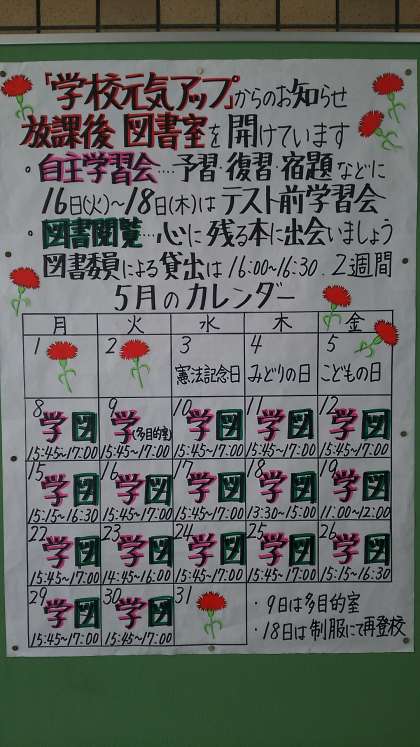 「学校元気アップ」からのお知らせ
放課後 図書室を開けています
・自主学習会…予習・復習・宿題などに
16日(火)~18日(木)はテスト前学習会
・図書閲覧…心に残る本に出会いましょう
図書委員による貸出は16:00~16:30.2週間
5月のカレンダー
月 火 水 木 金
1 2 3 4 5
憲法記念日 みどりの日 こどもの日
8 9 10 11 12
学図 学(多目的室) 学図 学図 学図
15:45~17:00 15:45~17:00 15:45~17:00 15:45~17:00 15:45~17:00
15 16 17 18 19
学図 学図 学図 学図 学図
15:15~16:30 15:45~17:00 15:45~17:00 13:30~15:00 11:00~12:00
22 23 24 25 26
学図 学図 学図 学図 学図
15:45~17:00 14:45~16:00 15:45~17:00 15:45~17:00 15:15~16:30
29 30 31
学図 学図
15:45~17:00 15:45~17:00
・9日は多目的室
・18日は制服にて再登校